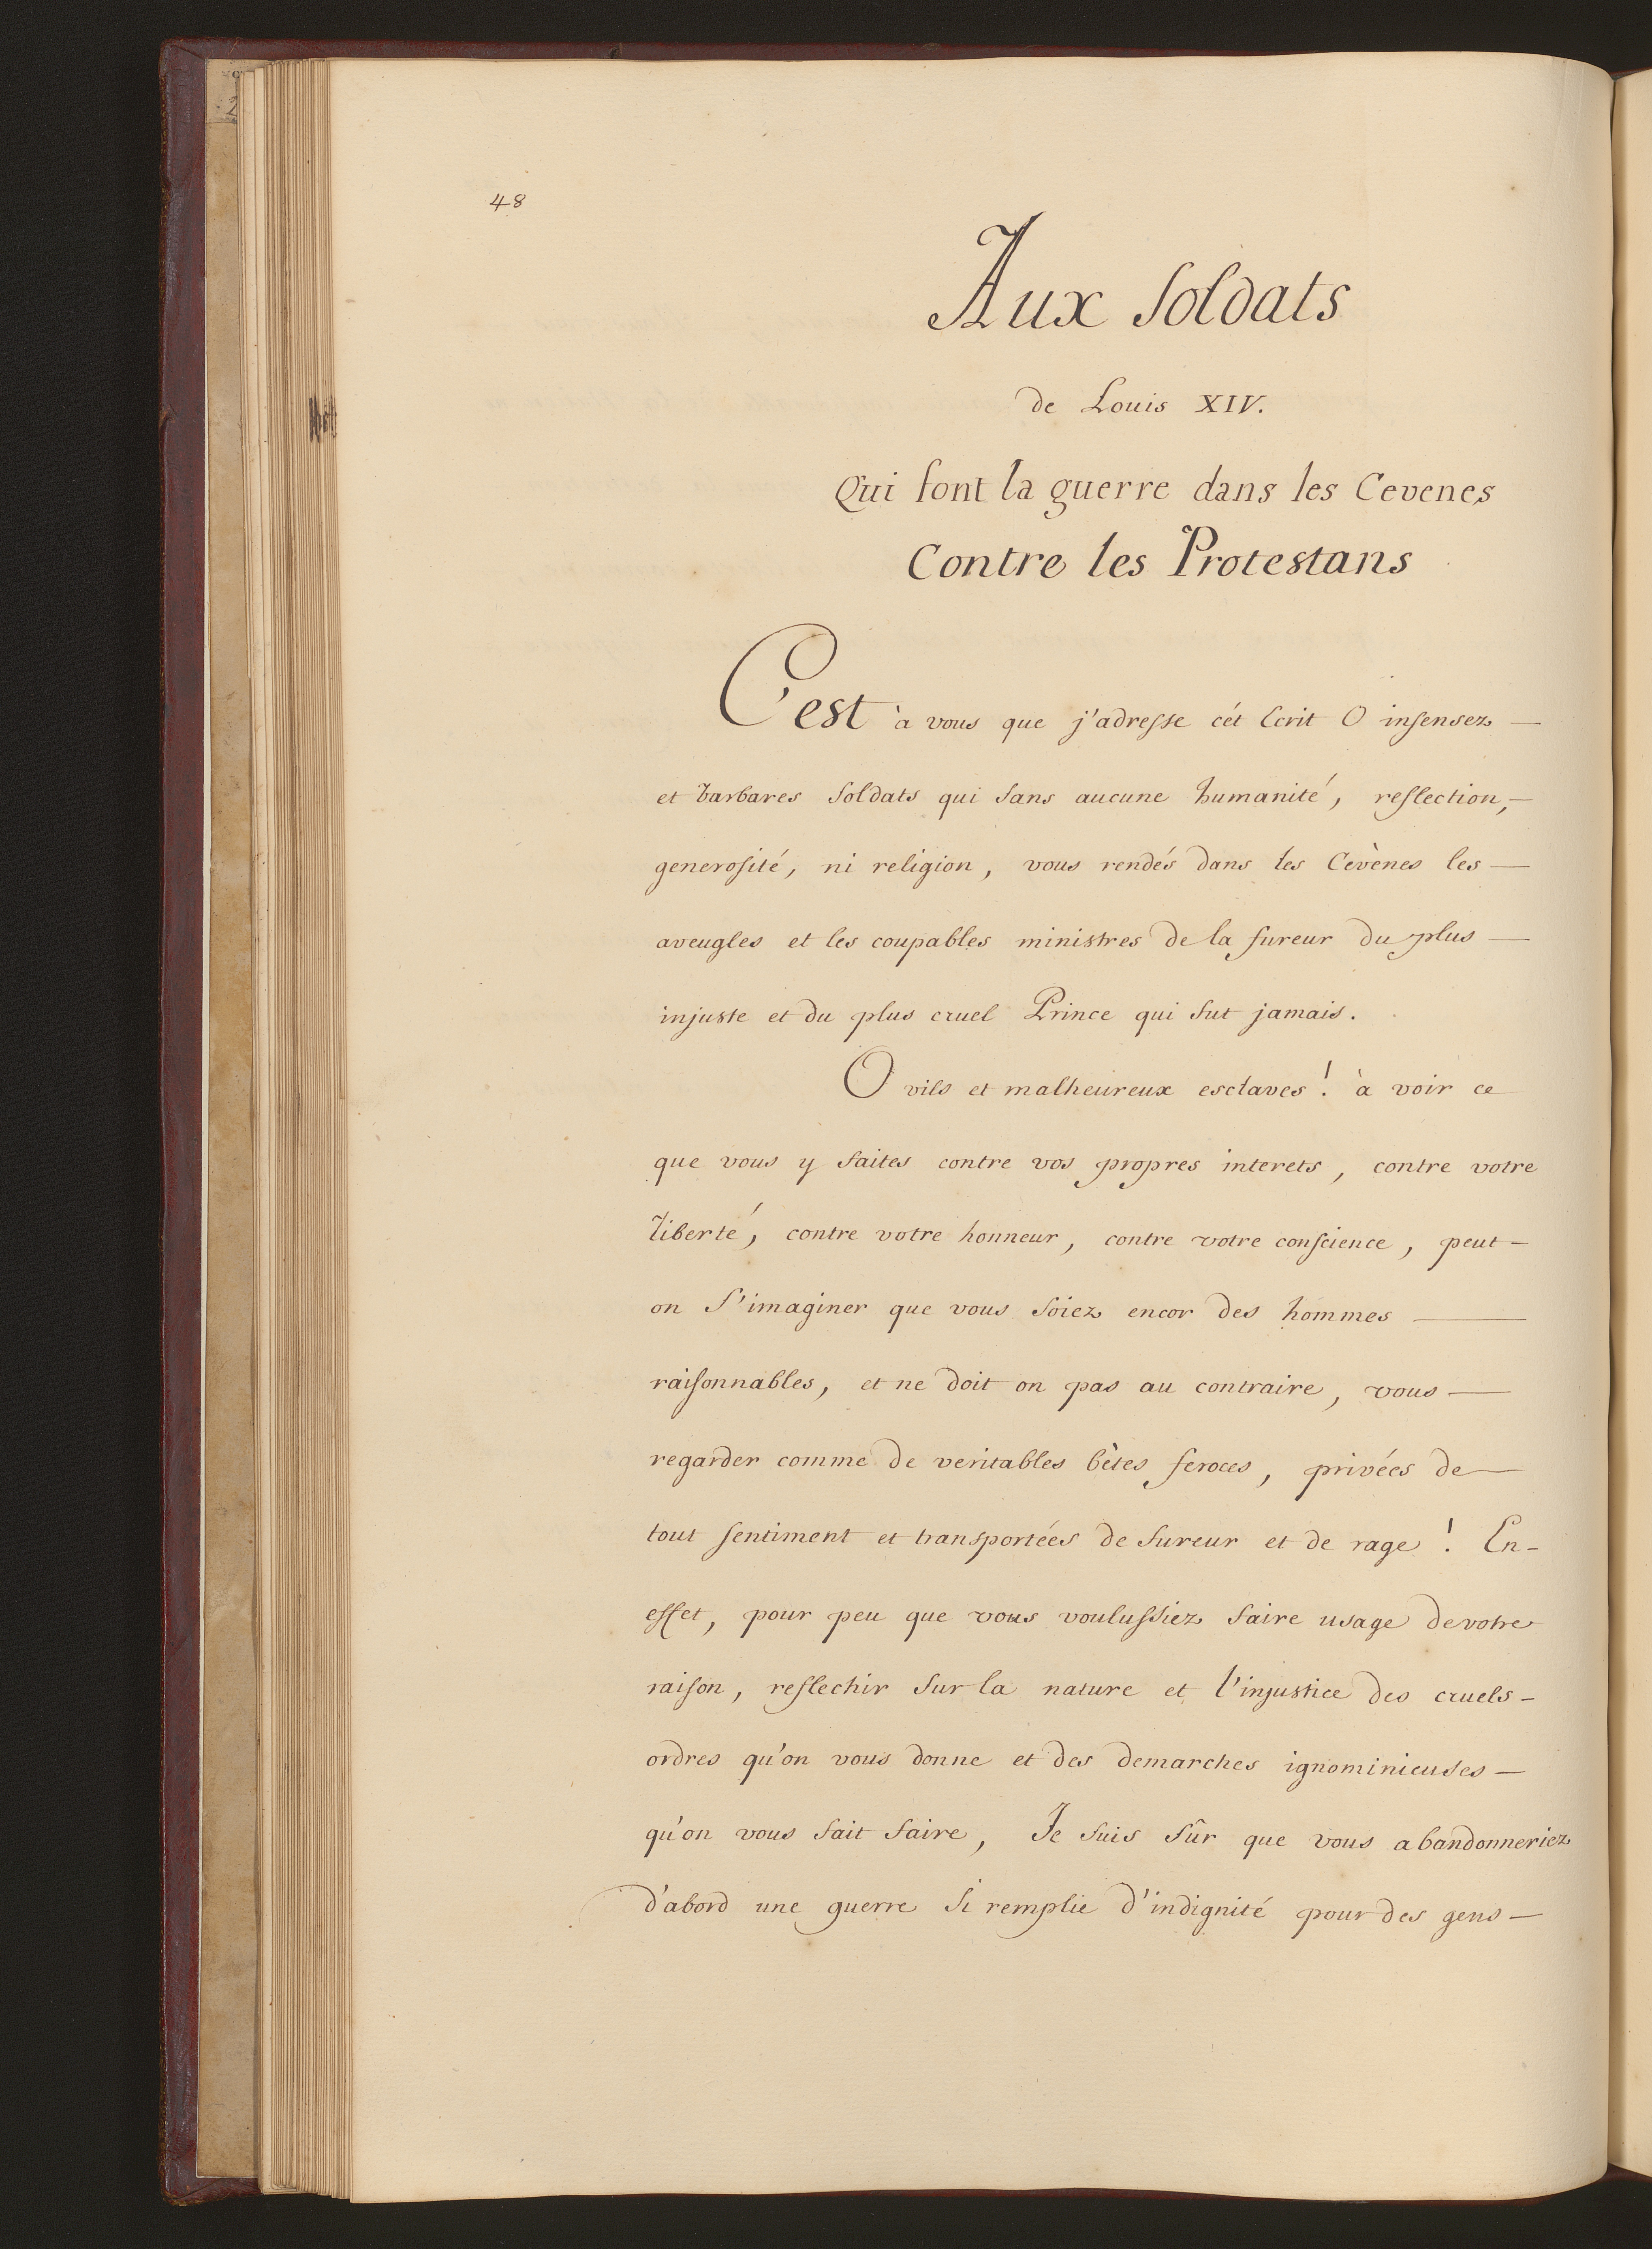 48
Aux Soldats
de Louis XIV.
Qui font la guerre dans les Cevenes
Contre les Protestans
C'est à vous que j'adresse cét Ecrit O insensez
et barbares soldats qui sans aucune humanité, reflection,
generosité, ni religion, vous rendés dans les Cevènes les
aveugles et les coupables ministres de la fureur du plus
injuste et du plus cruel Prince qui fut jamais.
O vils et malheureux esclaves! à voir ce
que vous y faites contre vos propres interets, contre votre
liberté, contre votre honneur, contre votre conscience, peut-
on s'imaginer que vous soiez encor des hommes
raisonnables, et ne doit on pas au contraire, vous
regarder comme de veritables bêtes feroces, privées de
tout sentiment et transportées de fureur et de rage! En-
effet, pour peu que vous voulussiez faire usage de votre
raison, reflechir sur la nature et l'injustice des cruels-
ordres qu'on vous donne et des demarches ignominieuses
qu'on vous fait faire, Je suis sûr que vous abandonneriez
d'abord une guerre si remplie d'indignité pour des gens